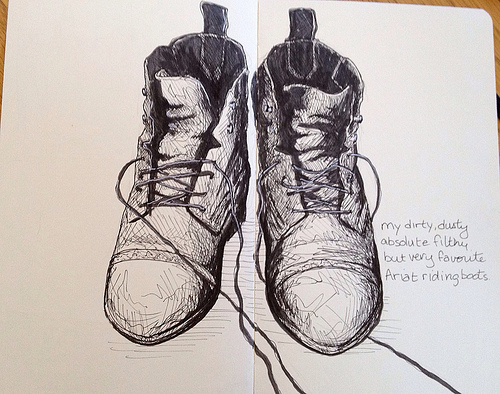 my dirty, dusty
absolute filthy
but very favourite
Ariat riding boots.